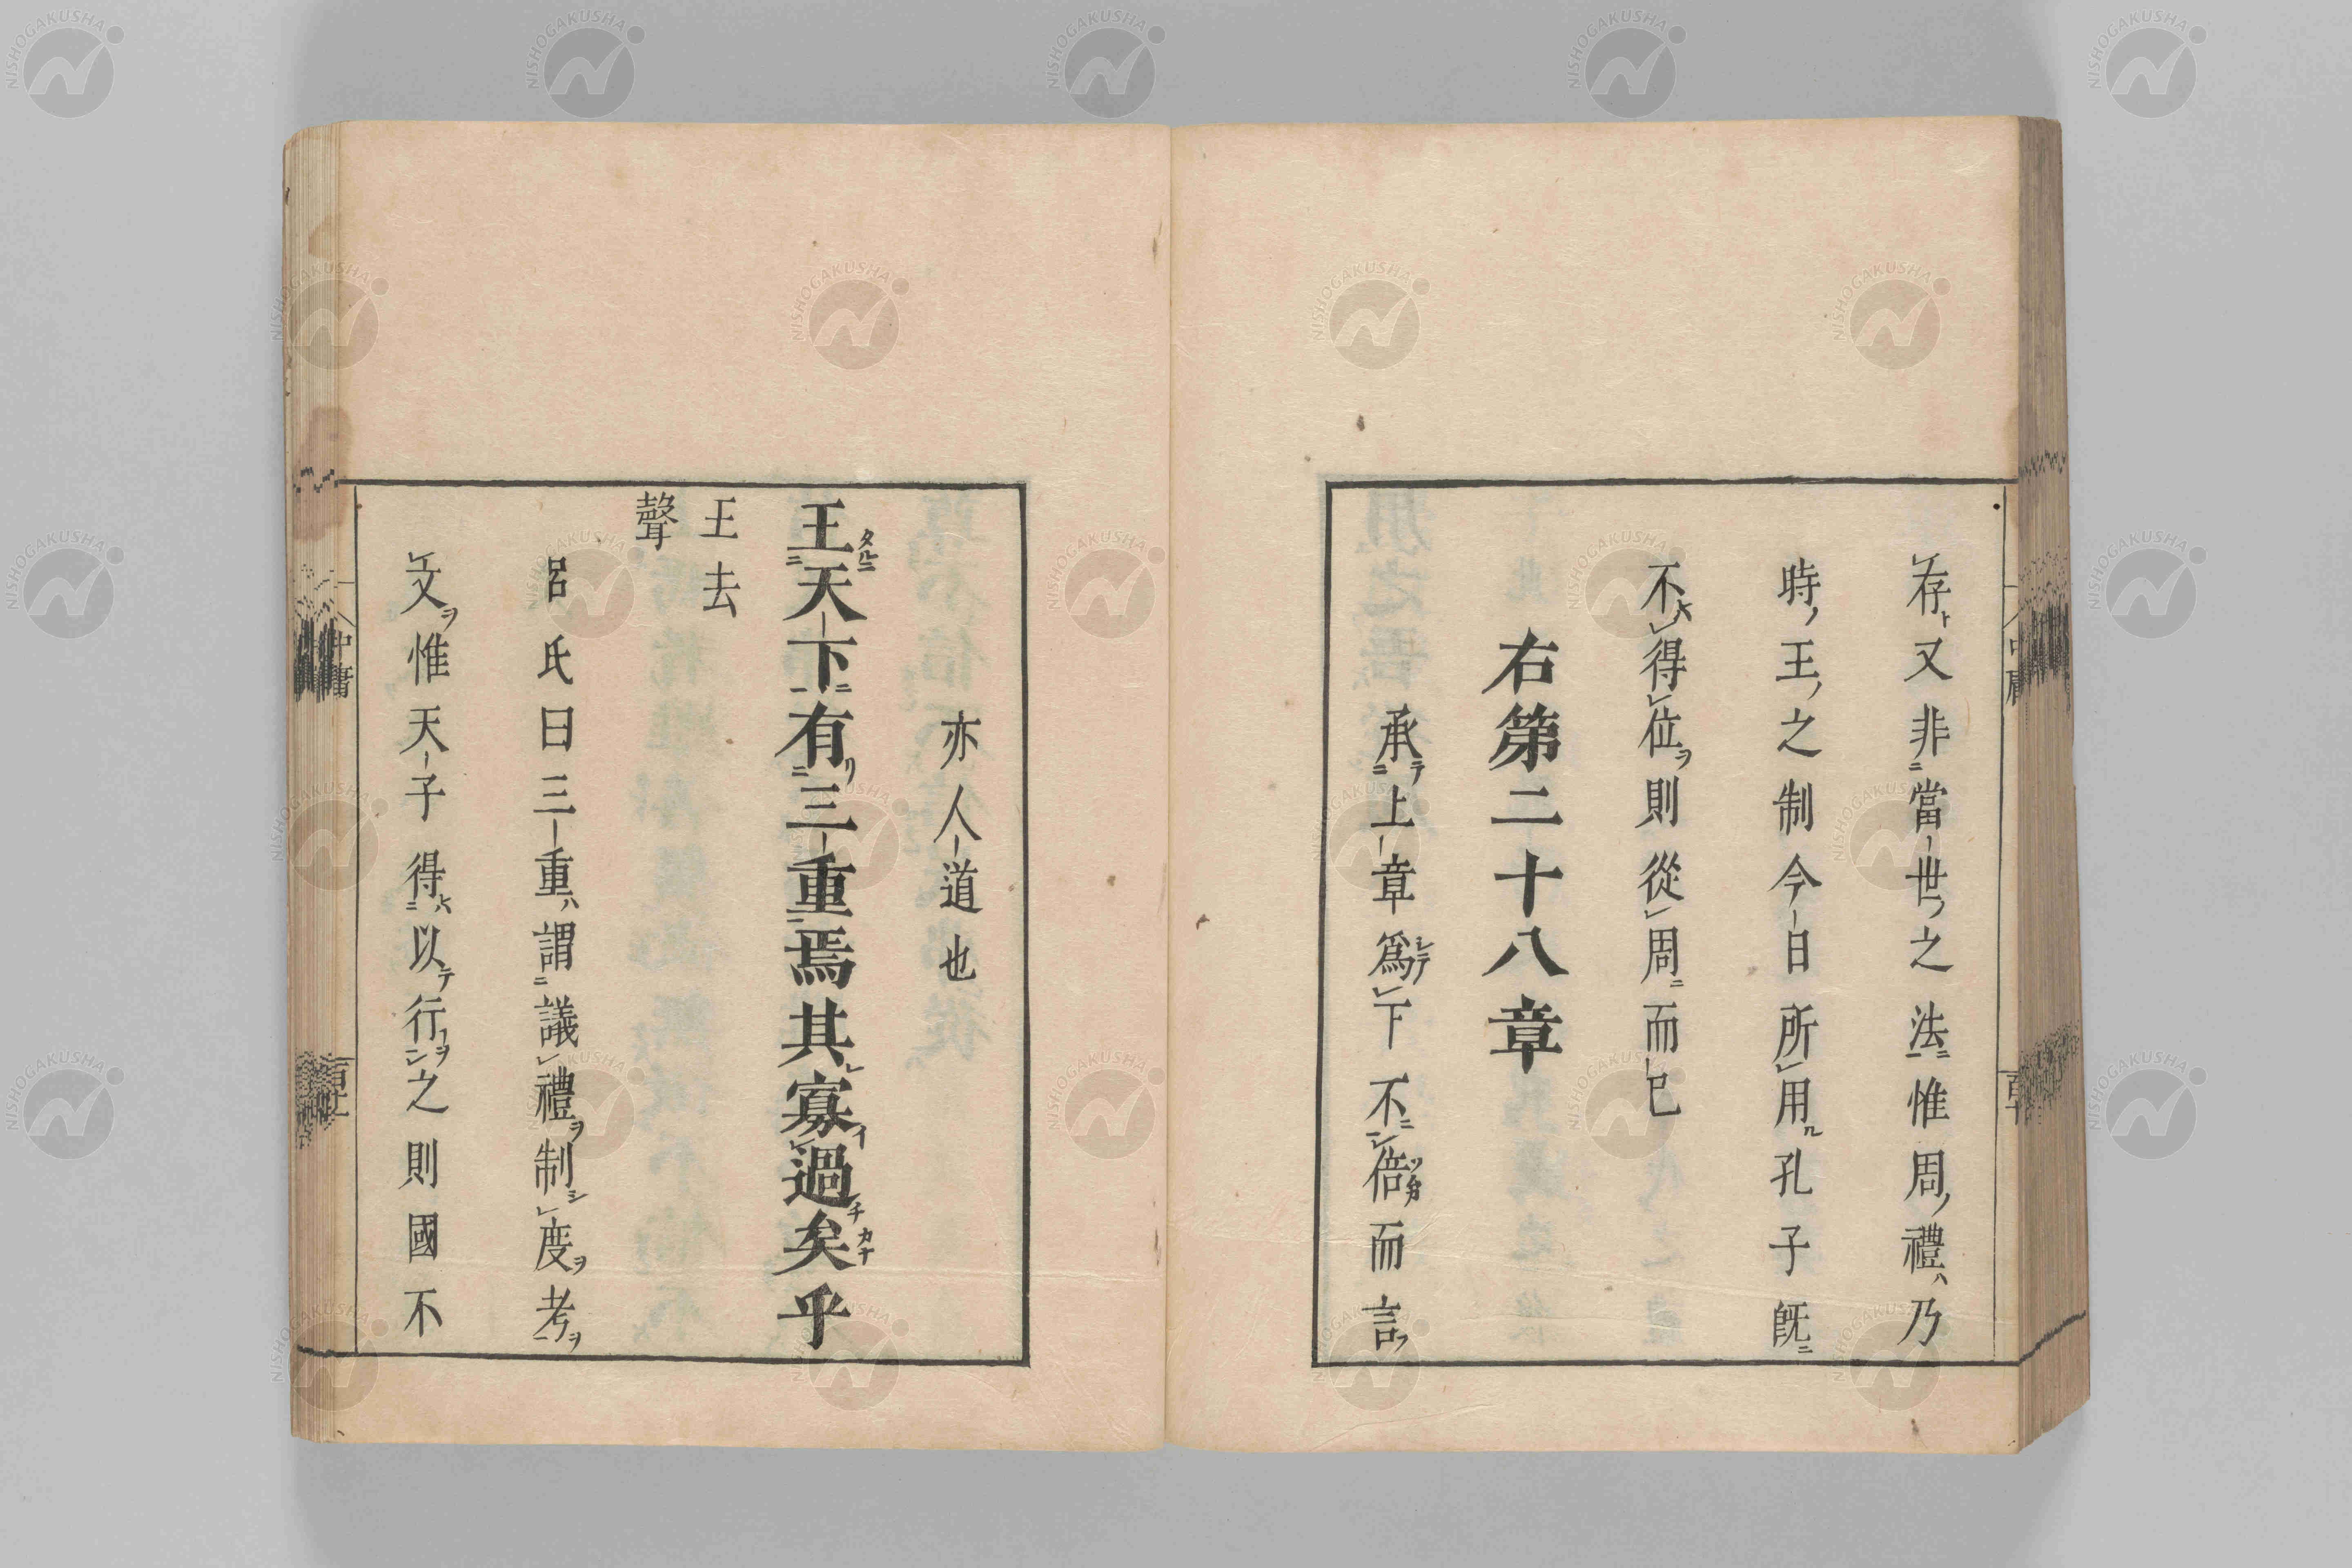 存又非當世之法惟周禮乃
時王之制今日所用孔子既
不得位則從周而已
右第二十八章
承上章爲下不倍而言
亦人道也
王天下有三重焉其寡過矣乎
王去
聲
呂氏曰三重謂議禮制度考
文惟天子得以行之則國不
中庸
NISHOGAKUSHA